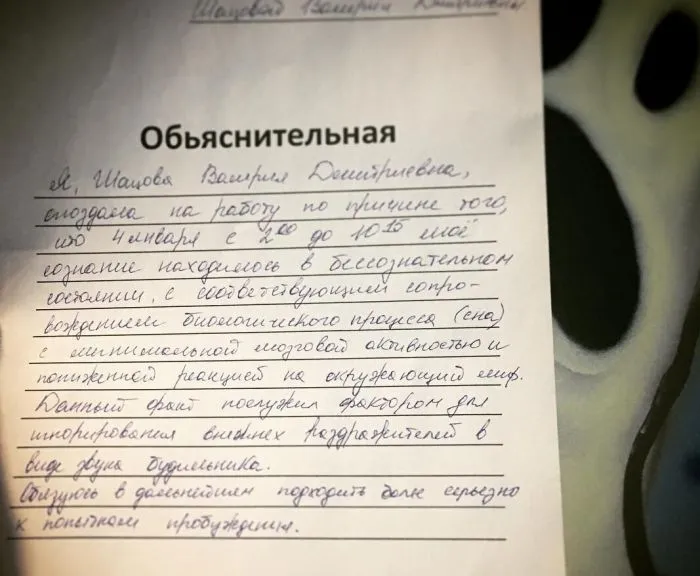 Шацовой Валерии Дмитриевны
Обьяснительная
Я, Шацова Валерия Дмитриевна,
опоздала на работу по причине того,
что 4 января с 2⁰⁰ до 10¹⁵ моё
сознание находилось в бессознательном
состоянии, с соответствующим сопро-
вождением биологического процесса (сна)
с минимальной мозговой активностью и
пониженной реакцией на окружающий мир.
Данный факт послужил фактором для
игнорирования внешних раздражителей в
виде звука будильника.
Обязуюсь в дальнейшем подходить более серьезно
к попыткам пробуждения.